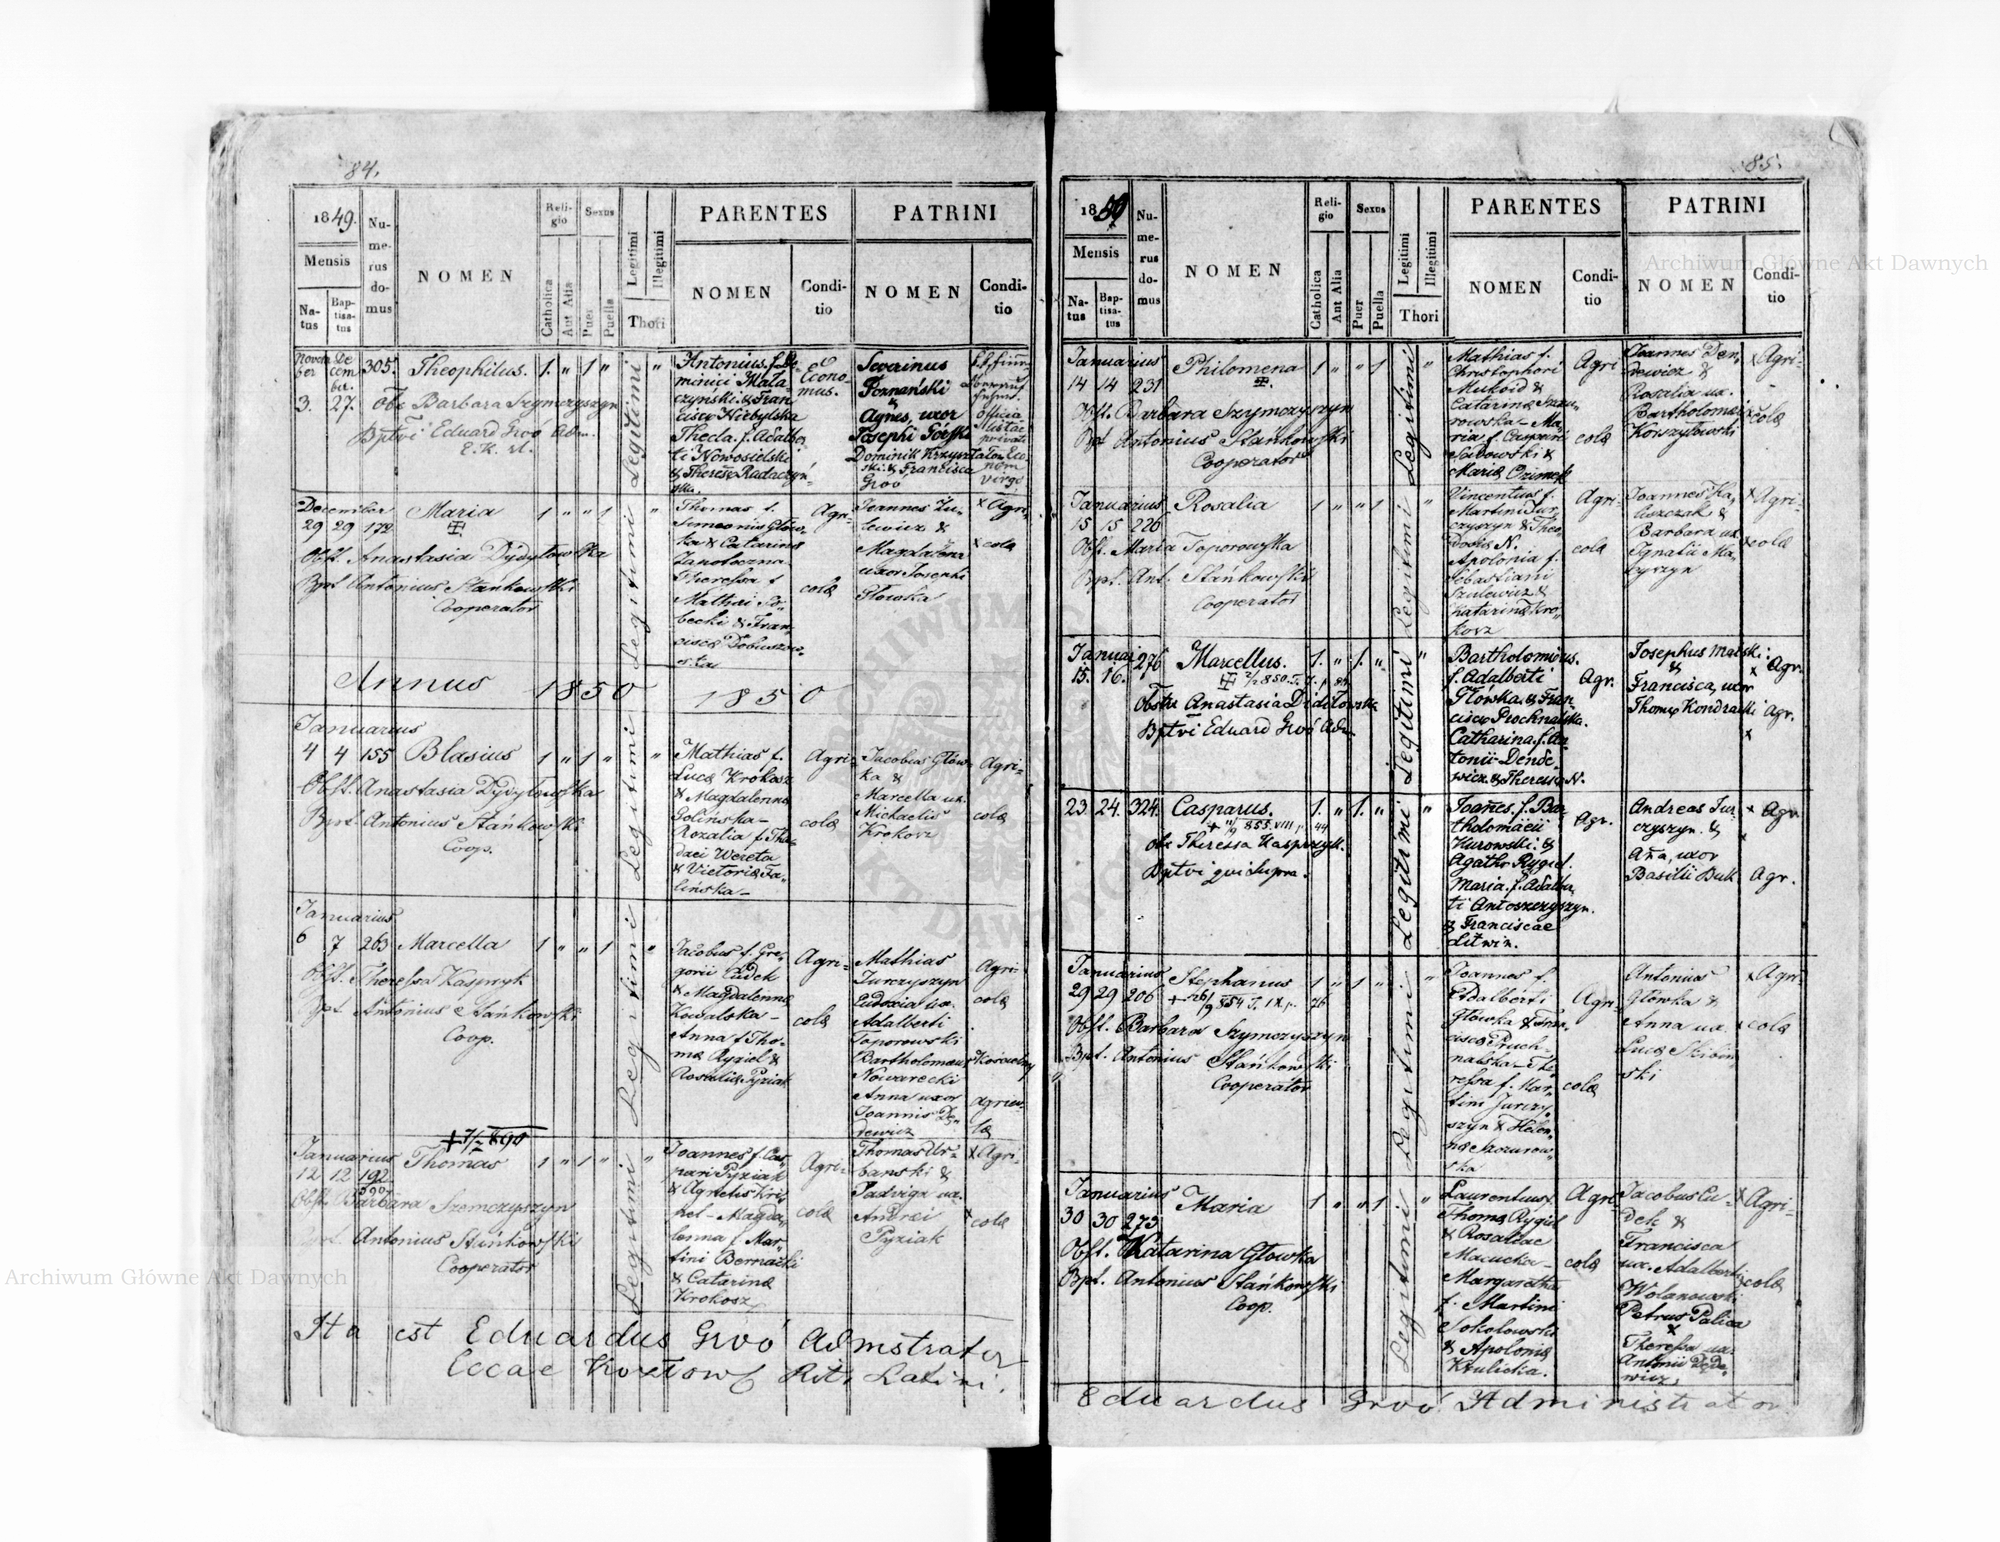 84.
1849.
Mensis
Natus
Baptisatus
Numerus domus
NOMEN
Religio
Catholica
Aut Alia
Sexus
Puer
Puella
Legitimi
Illegitimi
Thori
PARENTES
NOMEN
Conditio
PATRINI
NOMEN
Conditio
Novem De
ber cem
ber.
3. 27.
305. Theophilus. 1. " 1 " "
Obs Barbara Szymczyszyn
Bptvi Eduard Groó Adm.
Antonius f. Do
minici Mata
czynski. & Fran
Thecla. f. Adalber
ti Nowosielski
& Theresę Radaczyń
ska.
Econo-
mus.
Severinus
Poznański
&
Agnes, uxor
Josephi Górski
Dominik Krzyszta
ski. & Francisca
Groó
virgo
December
29 29 172 Maria 1 " " 1 "
Obst. Anastasia Dydyłowska
Bpt Antonius Stańkowski
Cooperator
Thomas f.
Simeonis Głów-
ka & Catarina
Zanotoczna
Theressa f
Mathei So-
becki & Fran-
cisca Dobuszow-
ska
Agri-
colæ
Joannes Zu-
lewicz &
Magdalena
uxor Josephi
Głowka
x Agri-
x colæ
Annus 1850 1850
Januarius
4 4 155 Blasius 1 " 1 " "
Obst. Anastasia Dydyłowska
Bpt. Antonius Stańkowski
Coop.
Mathias f.
Lucæ Krokosz
& Magdalenna
Golińska-
Rozalia f. Tha-
daei Wereta
& Victoria Ja-
lińska-
Agri-
colæ
Jacobus Głów-
ka &
Marcella ux.
Michaelis
Krokosz
Agri-
colæ
Januarius
6 7 263 Marcella 1 " " 1 "
Obst. Theressa Kasprzyk
Bpt Antonius Stańkowski
Coop.
Jacobus f. Gre-
gorii Cudek
& Magdalenna
Kowalska-
Anna f Tho-
mæ Rygiel &
Rosalia Pyziak
Agri-
colæ
Mathias
Jurczyszyn
Eudoxia ux.
Adalberti
Toporowski
Bartholomeus
Nowarecki
Anna uxor
Joannis De-
dewicz
Agri-
colæ
Kościelny
agrico-
læ
Januarius
12 12 192 Thomas 1 " 1 " "
Obst. Barbara Szemczyszyn
Bpt. Antonius Stańkowski
Cooperator
Joannes f. Cas-
pari Pyziak
& Agnetis Kris
pel- Magda-
lenna f Mar-
tini Bernacki
& Catarina
Krokosz
Agri-
colæ
Thomas Ur-
banski &
Jadviga ux.
Andrei
Pyziak
x Agri-
x colæ
Ita est Eduardus Groó Admstrator
Eccae Kozłow Rit. Latini.
85.
1850
Mensis
Natus
Baptisatus
Numerus domus
NOMEN
Religio
Catholica
Aut Alia
Sexus
Puer
Puella
Legitimi
Illegitimi
Thori
PARENTES
NOMEN
Conditio
PATRINI
NOMEN
Conditio
Januarius
14 14 231 Philomena 1 " " 1 "
Obst. Barbara Szymczyszyn
Bpt Antonius Stańkowski
Cooperator
Mathias f.
Christophori
Mukoid &
Catarina Szcu-
rowska- Ma-
ria f Caspari
Sadowski &
Mariæ Ozimek
Agri
colæ
Joannes Den-
dewicz &
Rosalia ux.
Bartholomei
Korszyłowski
x Agri-
x colæ
Januarius
15 15 226 Rosalia 1 " " 1 "
Obst. Maria Toporowska
Bpt. Ant. Stańkowski
Cooperator
Vincentius f.
Martini Jur-
czyszyn & Theo-
dosia N.
Apolonia f.
Sebastiani
Szulewicz &
Katarina Kro-
kosz
Agri-
colæ
Joannes Ka-
liszczak &
Barbara ux.
Ignatii Ma-
zyszyn
x Agri-
x colæ
Januar
15. 16. 276 Marcellus. 1. " 1. " "
Obstx Anastasia Didiłowska
Bptvi Eduard Groó Adm
Bartholomeus.
f. Adalberti
Główska. & Fran
ciscæ Prochnalska.
Catharina. f. An
tonii Dende-
wicz. & Theresia N.
Agr.
Josephus Malski.
&
Francisca, uxor
Thomæ Kondracki
x Agr.
Agr.
x
23. 24. 324. Casparus. 1. " 1. " "
obs Theressa Kasprzyk.
Bptvi qui supra.
Joannes. f. Bar
tholomaei
Kurowski. &
Agatha Rygiel.
Maria. f. Adalber
ti Antoszczyszyn.
& Franciscae
Litwin.
Agr.
Andreas Jur
czyszyn. &
Anna, uxor
Basilii Duk
x Agr.
x
Agr.
Januarius
29 29 206 Stephanus 1 " 1 " "
Obst. Barbara Szymczyszyn
Bpt. Antonius Stańkowski
Cooperator
Joannes f.
Adalberti
Główka & Fran
cisca Pruch-
nalska- The-
ressa f. Mar-
tini Jurczy-
szyn & Helen-
næ Szczurow-
ska
Agri-
colæ
Antonius
Główka &
Anna ux.
Lucæ Skibin
ski
x Agri-
x colæ
Januarius
30 30 273 Maria 1 " " 1 "
Obst. Katarina Głowka
Bpt. Antonius Stańkowski
Coop.
Laurentius f.
Thomæ Rygiel
& Rosaliae
Macucka-
Margaretha
f. Martini
Sokolowski
& Apolonia
Kzulicka.
Agri
colæ
Jacobus Cu-
dek &
Francisca
ux. Adalberti
Wolanowski
Petrus Palica
x
Theressa ux.
Antonii Dede-
wicz,
x Agri-
x colæ
Eduardus Groó Administrator
Legitimi Legitimi Legitimi Legitimi Legitimi
Archiwum Główne Akt Dawnych
Archiwum Główne Akt Dawnych
ARCHIWUM GŁÓWNE AKT DAWNYCH